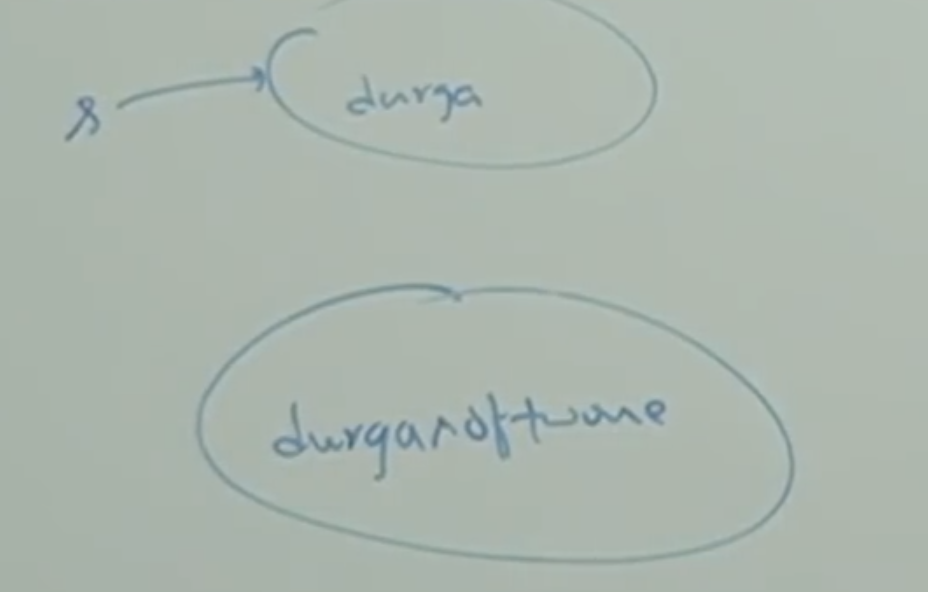 s
durga
durgasoftware